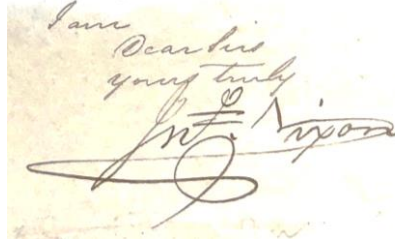 I am
Dear Sir
yours truly
Jno. Nixon